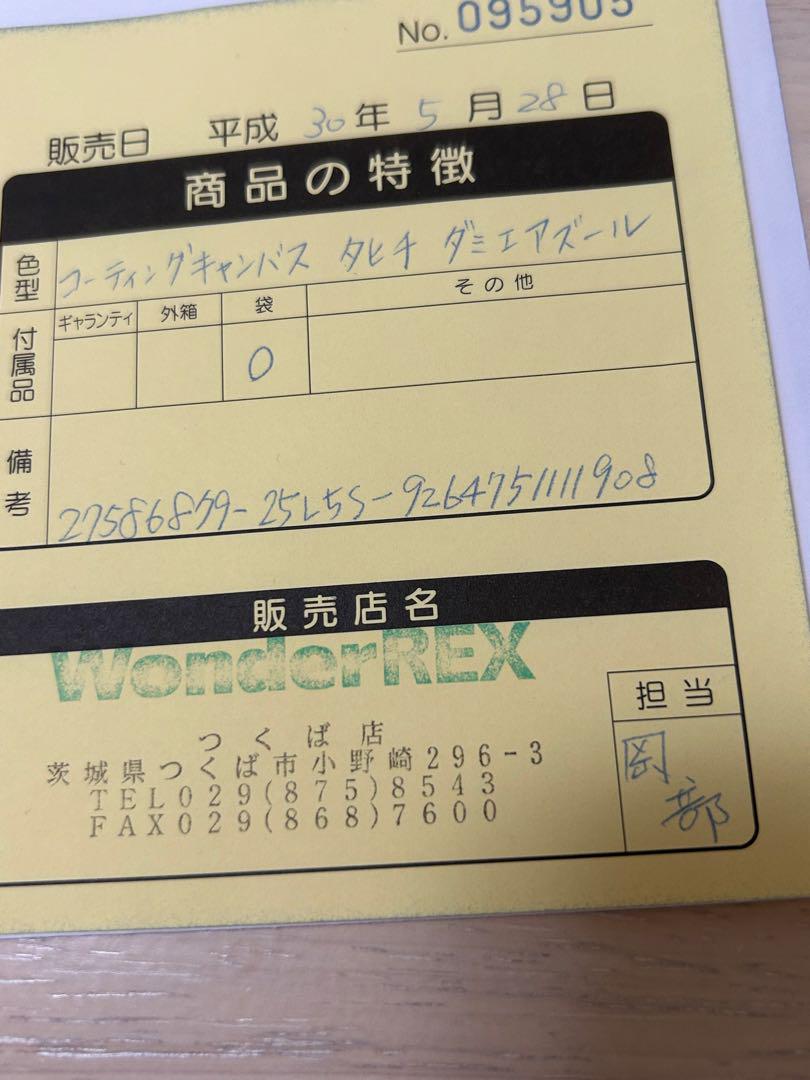 No. 095905
販売日 平成 30 年 5 月 28 日
商品の特徴
色型 コーティングキャンバス タヒチ ダミエアズール
付属品 ギャランティ 外箱 袋 その他
○
備考 27586879-25L5S-9264751111908
販売店名
WonderREX
つくば店
茨城県つくば市小野崎296-3
TEL029(875)8543
FAX029(868)7600
担当
岡部